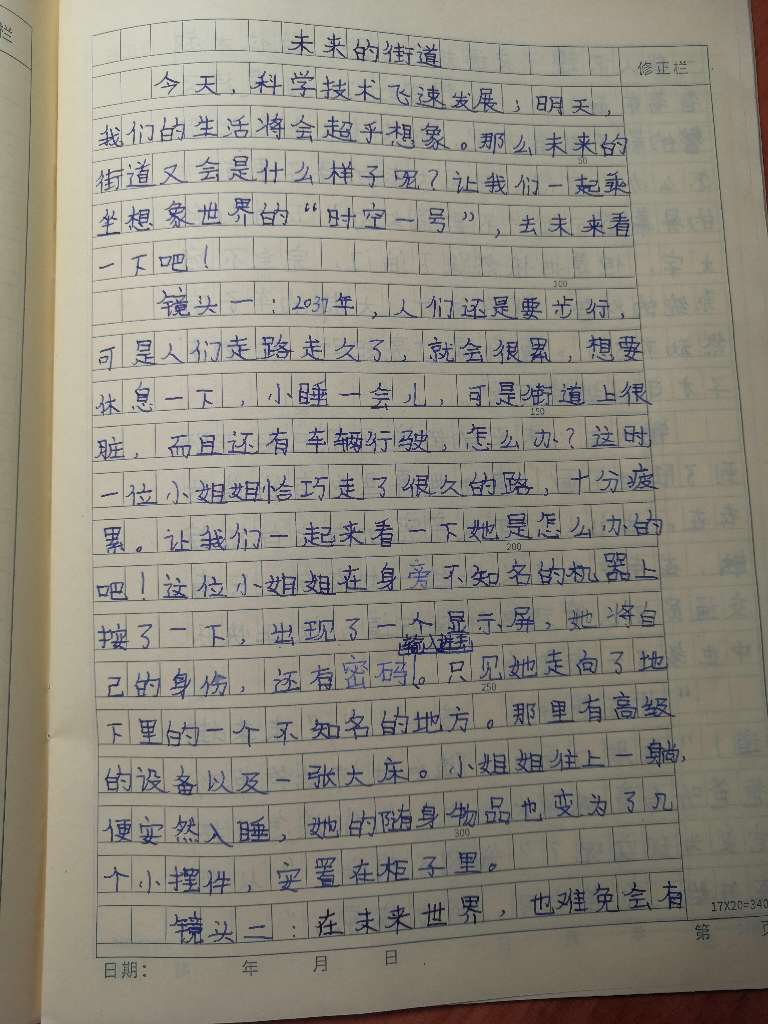 未来的街道
修正栏
今天，科学技术飞速发展；明天，
我们的生活将会超乎想象。那么未来的
50
街道又会是什么样子呢？让我们一起乘
坐想象世界的“时空一号”，去未来看
一下吧！
100
镜头一：2037年，人们还是要步行，
可是人们走路走久了，就会很累，想要
休息一下，小睡一会儿，可是街道上很
150
脏，而且还有车辆行驶，怎么办？这时
一位小姐姐恰巧走了很久的路，十分疲
累。让我们一起来看一下她是怎么办的
200
吧！这位小姐姐在身旁不知名的机器上
按了一下，出现了一个显示屏，她将自
输入进去
己的身份，还有密码。只见她走向了地
250
下里的一个不知名的地方。那里有高级
的设备以及一张大床。小姐姐往上一躺，
便安然入睡，她的随身物品也变为了几
300
个小摆件，安置在柜子里。
镜头二：在未来世界，也难免会有
17X20=340
日期： 年 月 日
第 页
栏